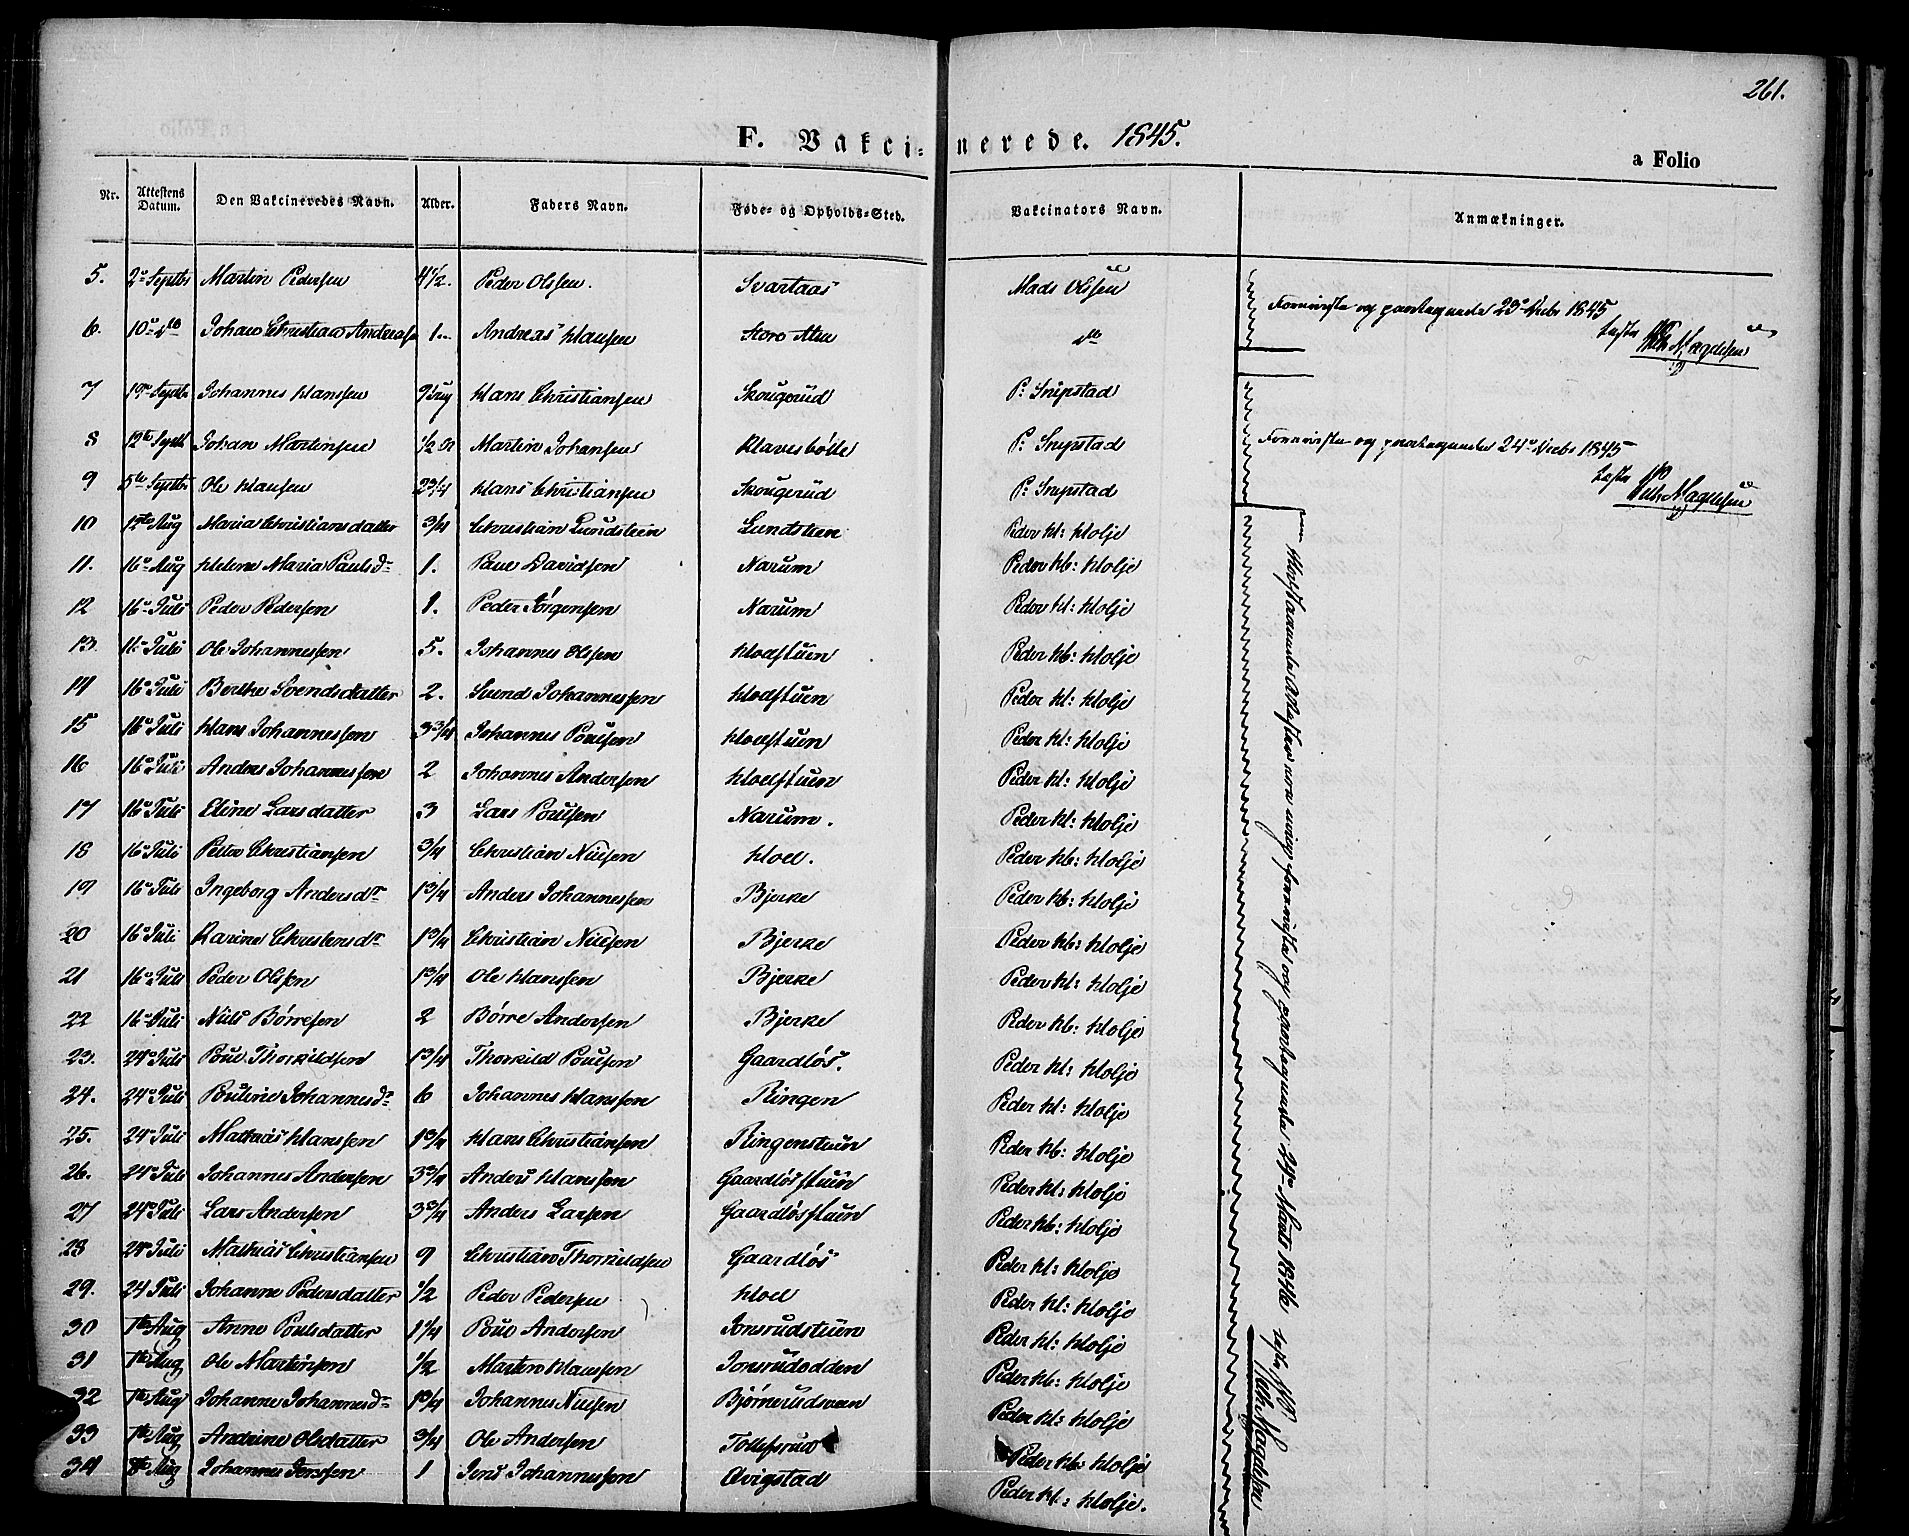 261.
F. Vakcinerede. 1845.
a Folio
Nr. Attestens Datum. Den Vakcineredes Navn. Alder. Faders Navn. Føde- og Opholds-Sted. Vakcinators Navn. Anmærkninger.
5. 2 Septbr Martin Pedersen 4 1/2. Peder Olssen. Svartaas Mads Olssen
6. 10 Johan Christian 1 Andreas Hansen Mads
7 19 Septbr Johannes Hanssen Hans Christiansen Skougerud P: Snipstad
8 12te Septbr Johan Martinsen 1/2 Martin Johansen Klavesbölle P: Snipstad
9 5te Septbr Ole Hansen 2 3/4 Hans Christiansen Skougerud P: Snipstad
10 12te Aug Maria Christiansdatter 3/4 Christian Lundsteen Lundsteen Peder H: Holje
11. 16 Aug Helene Maria Paulsdr 1. Paul Davidsen Narum Peder H: Holje
12 16 Juli Peder Pedersen 1. Peder Jörgensen Narum Peder H: Holje
13. 16 Juli Ole Johannessen 5. Johannes Olssen Hoelstuen Peder H: Holje
14 16 Juli Berthe Svendsdatter 2. Svend Johannessen Hoelstuen Peder H: Holje
15 16 Juli Hans Johannessen 3 3/4 Johannes Poulsen Hoelstuen Peder H: Holje
16 16 Juli Anders Johannessen 2 Johannes Andersen Hoelstuen Peder H: Holje
17 16 Juli Eline Larsdatter 3 Lars Poulsen Narum. Peder H: Holje
18 16 Juli Peder Christiansen 3/4 Christian Nielsen Hoel. Peder H: Holje
19 16 Juli Ingeborg Andersdr 1 3/4 Anders Johannessen Bjerke Peder H: Holje
20 16 Juli Karine Christensdr 1 3/4 Christian Nielsen Bjerke Peder H: Holje
21 16 Juli Peder Olssen 1 3/4 Ole Hanssen Bjerke Peder H: Holje
22 16 Juli Niels Börresen 2 Börre Andersen Bjerke Peder H: Holje
23. 24 Juli Poul Thorkildsen 1 3/4 Thorkild Poulsen Gaardlös. Peder H: Holje
24. 24 Juli Pouline Johannesdr 6 Johannes Hanssen Ringen Peder H: Holje
25. 24 Juli Mathias Hanssen 1 3/4 Hans Christiansen Ringenstuen Peder H: Holje
26. 24 Juli Johannes Andersen 3 3/4 Anders Hanssen Gaardlösstuen Peder H: Holje
27 24 Juli Lars Andersen 3 3/4 Anders Larsen Gaardlösstuen Peder H: Holje
28 24 Juli Mathias Christiansen 9 Christian Thorkildsen Gaardlös Peder H: Holje
29. 24 Juli Johanne Pedersdatter 1/2 Peder Pedersen Hoel Peder H: Holje
30 1te Aug Anne Poulsdatter 1 1/4 Poul Andersen Jonsrudstuen Peder H: Holje
31 1te Aug Ole Martinsen 1/2 Martin Hansen Jonsrudodden Peder H: Holje
32 1te Aug Johanne Johannesdr 1 3/4 Johannes Nielsen Björnerudsveen Peder H: Holje
33 1te Aug Andrine Olsdatter 3/4 Ole Andersen Tollefsrud Peder H: Holje
34 Aug Johannes Jenssen 1 Jens Johannessen Qvigstad Peder H: Holje.
1845
1845
1846